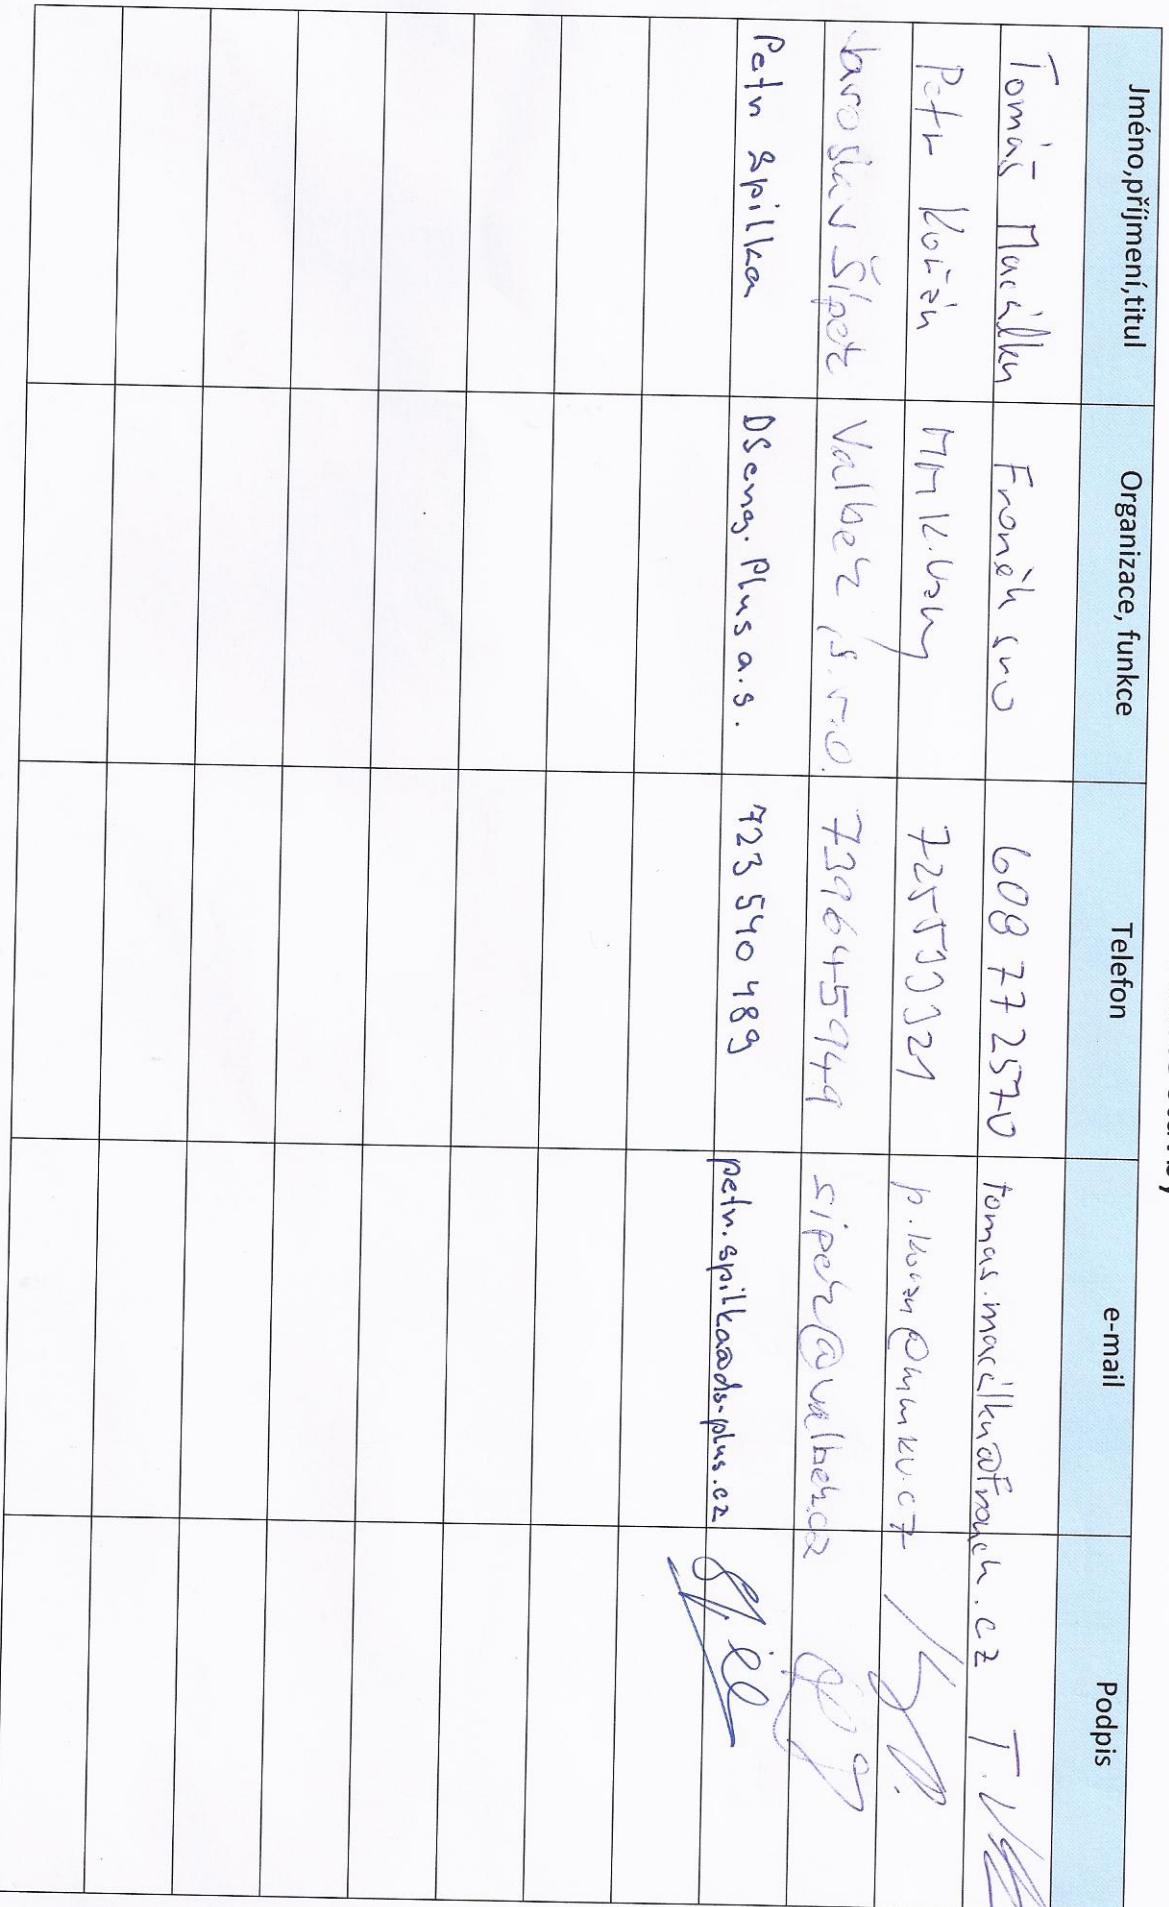 Jméno,příjmení,titul Organizace, funkce Telefon e-mail Podpis
Tomáš Macálka Froněk sro 608 772570 tomas.macalka@fronek.cz
Petr Kořán MMK.Vary 725533321 p.koran@mmkv.cz
Jaroslav Šípek Valbek, s.r.o. 739645949 sipek@valbek.cz
Petr Spilka DSeng. Plus a.s. 723 540 489 petr.spilka@ds-plus.cz